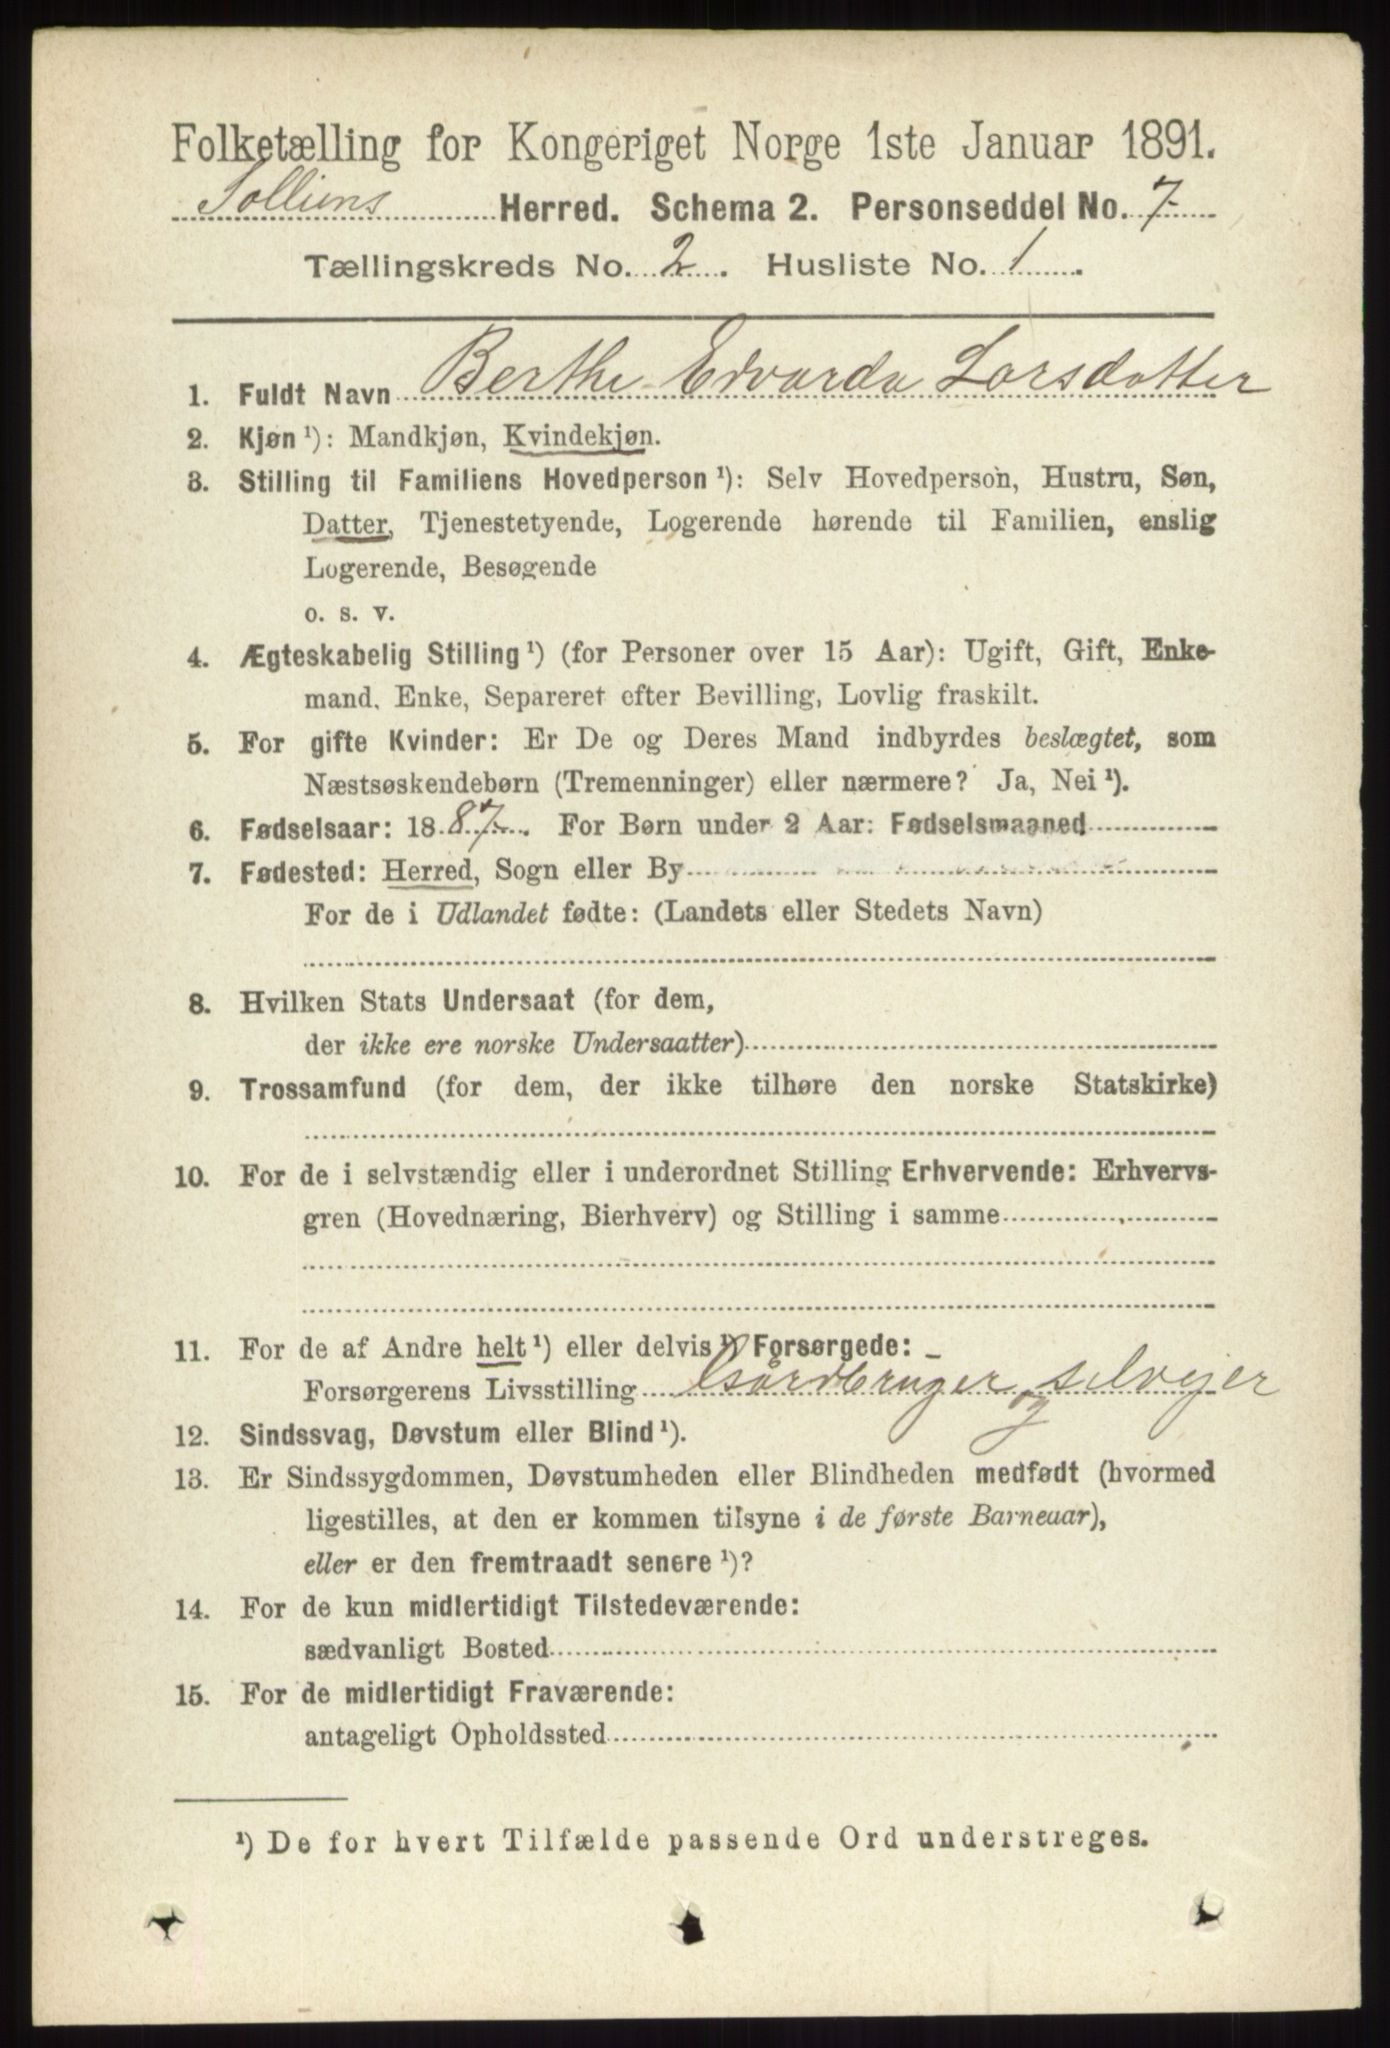 Folketælling for Kongeriget Norge 1ste Januar 1891.
Solliens Herred. Schema 2. Personseddel No. 7
Tællingskreds No. 2. Husliste No. 1.
1. Fuldt Navn Berthe Edvarda Larsdatter
2. Kjøn ¹): Mandkjøn, Kvindekjøn.
3. Stilling til Familiens Hovedperson ¹): Selv Hovedperson, Hustru, Søn,
Datter, Tjenestetyende, Logerende hørende til Familien, enslig
Logerende, Besøgende
o. s. v.
4. Ægteskabelig Stilling ¹) (for Personer over 15 Aar): Ugift, Gift, Enke-
mand, Enke, Separeret efter Bevilling, Lovlig fraskilt.
5. For gifte Kvinder: Er De og Deres Mand indbyrdes beslægtet, som
Næstsøskendebørn (Tremenninger) eller nærmere? Ja, Nei ¹).
6. Fødselsaar: 1887. For Børn under 2 Aar: Fødselsmaaned
7. Fødested: Herred, Sogn eller By
For de i Udlandet fødte: (Landets eller Stedets Navn)
8. Hvilken Stats Undersaat (for dem,
der ikke ere norske Undersaatter)
9. Trossamfund (for dem, der ikke tilhøre den norske Statskirke)
10. For de i selvstændig eller i underordnet Stilling Erhvervende: Erhvervs-
gren (Hovednæring, Bierhverv) og Stilling i samme
11. For de af Andre helt ¹) eller delvis ¹) Forsørgede:
Forsørgerens Livsstilling Gårdbruger og selvejer
12. Sindssvag, Døvstum eller Blind ¹).
13. Er Sindssygdommen, Døvstumheden eller Blindheden medfødt (hvormed
ligestilles, at den er kommen tilsyne i de første Barneaar),
eller er den fremtraadt senere ¹)?
14. For de kun midlertidigt Tilstedeværende:
sædvanligt Bosted
15. For de midlertidigt Fraværende:
antageligt Opholdssted
¹) De for hvert Tilfælde passende Ord understreges.